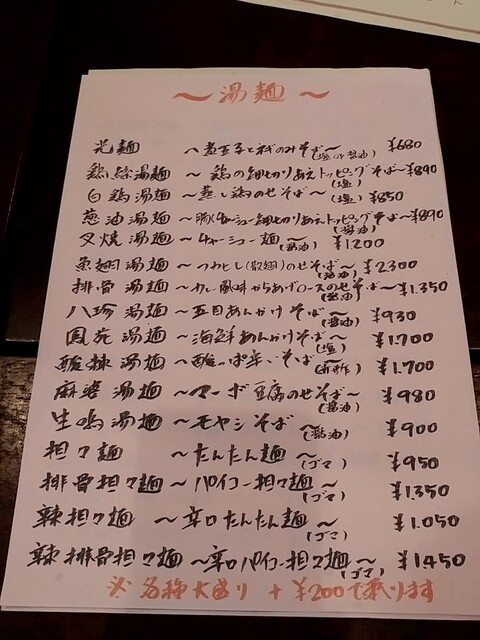 ～湯麺～
光麺 ～煮玉子とネギのみそば～(塩or醤油) ¥680
鶏絲湯麺 ～鶏の細切りあえトッピングそば～(塩) ¥890
白鶏湯麺 ～蒸し鶏のせそば～(塩) ¥850
葱油湯麺 ～ネギ、チャーシュー細切りあえトッピングそば～(醤油) ¥890
叉焼湯麺 ～チャーシュー麺～(醤油) ¥1.200
魚翅湯麺 ～フカヒレ(散翅)のせそば～(醤油) ¥2300
排骨湯麺 ～カレー風味からあげロースのせそば～(醤油) ¥1.350
八珍湯麺 ～五目あんかけそば～(醤油) ¥930
圓苑湯麺 ～海鮮あんかけそば～(塩) ¥1.700
酸辣湯麺 ～酸っぱ辛いそば～ ¥1.700
麻婆湯麺 ～マーボ豆腐のせそば～(醤油) ¥980
生嗎湯麺 ～モヤシそば～(醤油) ¥900
担々麺 ～たんたん麺～(ゴマ) ¥950
排骨担々麺 ～パイコー担々麺～(ゴマ) ¥1.350
辣担々麺 ～辛口たんたん麺～(ゴマ) ¥1.050
辣排骨担々麺 ～辛口パイコー担々麺～(ゴマ) ¥1450
※各種大盛り+¥200で承ります